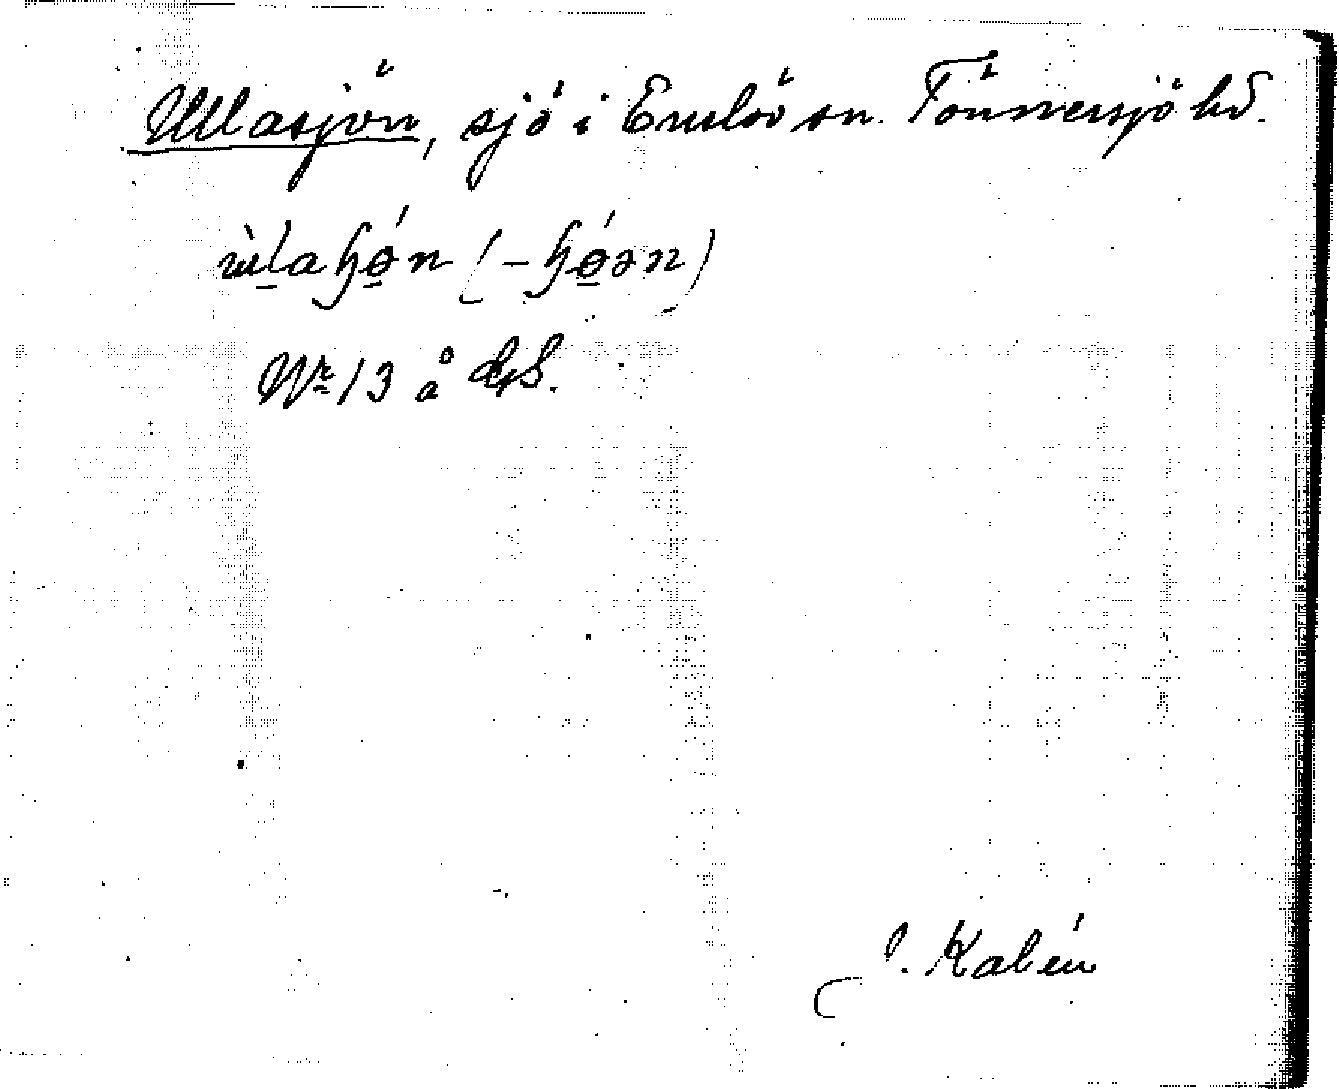 Ullasjön, sjö i Enslöv sn. Tönnersjö hd.
ùlahǿn (-hǿən)
Nr 13 å
J. Kalén